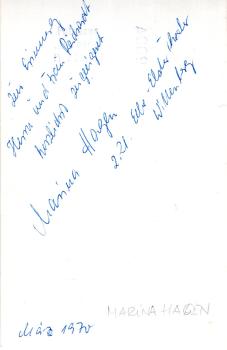 Zur Erinnerung
Herrn und Frau Reichardt
herzlichst zugeeignet
Marina Hagen
z. Zt. Elbe-Elster-Theater
Wittenberg
MARINA HAGEN
März 1970